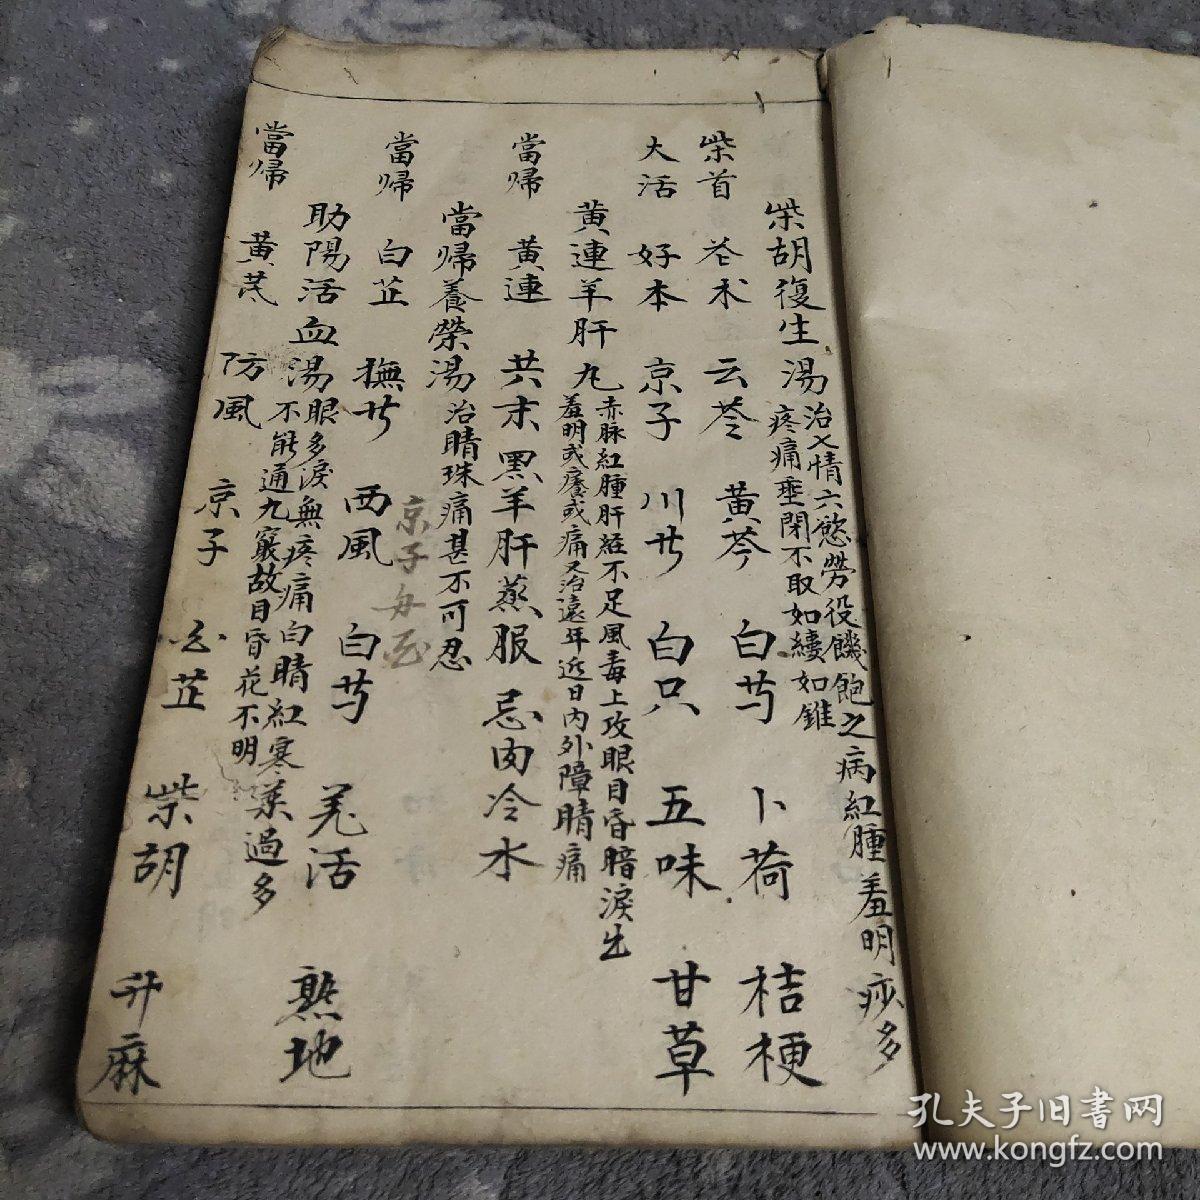 柴胡復生湯 治七情六慾勞役饑飽之病紅腫羞明痧多
疼痛垂閉不取如縷如錐
柴首 苍术 云苓 黄芩 白芍 卜荷 桔梗
大活 好本 京子 川芎 白只 五味 甘草
黄連羊肝丸 赤脉紅腫肝経不足風毒上攻眼目昏暗淚出
羞明或癢或痛又治遠年近日内外障睛痛
當帰 黄連 共末黑羊肝蒸服 忌肉冷水
當帰養榮湯 治睛珠痛甚不可忍
京子
當帰 白芷 撫芎 西風 白芍 羌活 熟地
助陽活血湯 眼多淚無疼痛白睛紅寒藥過多
不能通九竅故目昏花不明
當帰 黄芪 防風 京子 白芷 柴胡 升麻
孔夫子旧書网
www.kongfz.com